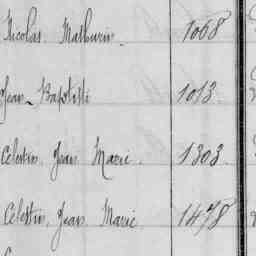 Nicolas Mathurin. 1068
Jean Baptiste 1013.
Celestin, Jean Marie. 1303.
Celestin, Jean Marie. 1478